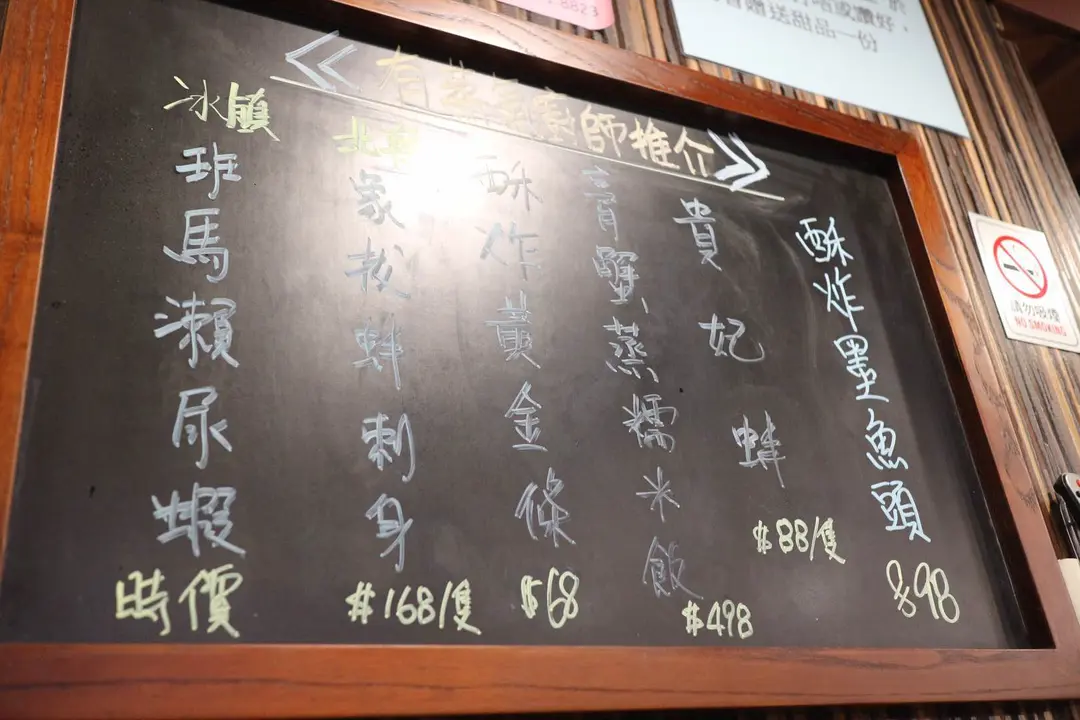 8823
於
或讚好，
贈送甜品一份
有蒸 廚師推介
酥炸墨魚頭
$98
貴妃蚌
$88/隻
膏蟹蒸糯米飯
$498
酥炸黃金條
$68
北
象拔蚌刺身
$168/隻
冰鎮
班馬瀨尿蝦
時價
請勿吸煙
NO SMOKING